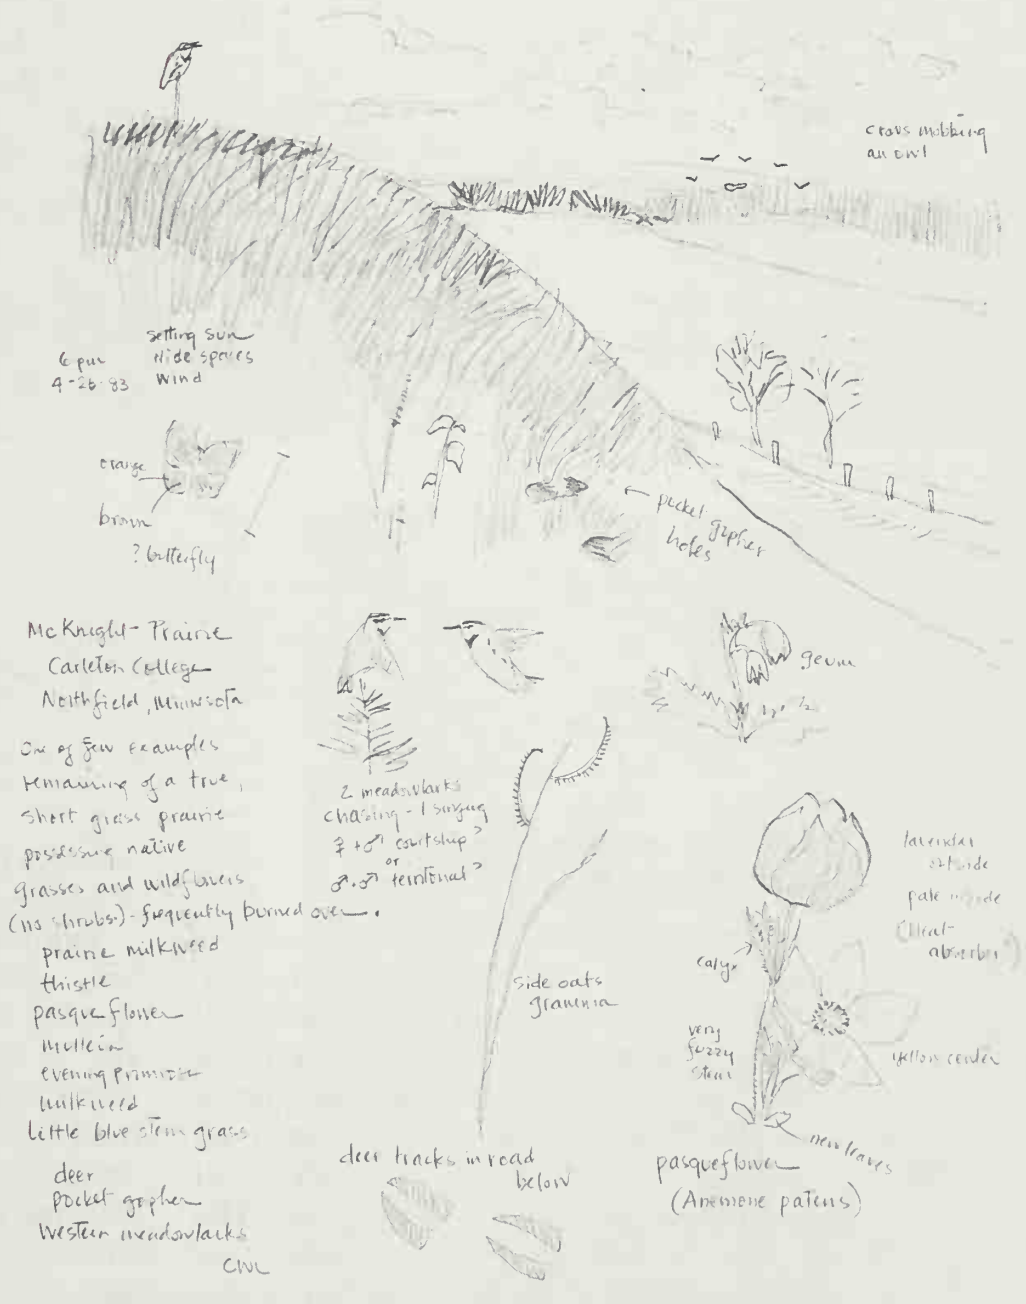 crows mobbing
an owl
setting sun
Wide spaces
Wind
6 pm
4-26-83
orange
brown
? butterfly
pocket gopher
holes
McKnight Prairie
Carleton College
Northfield, Minnesota
One of few examples
remaining of a true,
short grass prairie
possessing native
grasses and wildflowers
(no shrubs.) - frequently burned over.
prairie milkweed
thistle
pasque flower
mullein
evening primrose
milkweed
Little blue stem grass
deer
pocket gopher
Western meadowlarks
CWL
2 meadowlarks
chasing - 1 singing
♀ + ♂ courtship?
or
♂.♂ territorial?
geum
side oats
gramma
lavender
outside
pale inside
(Heat-
absorber)
calyx
very
fuzzy
stem
yellow center
new leaves
pasqueflower
(Anemone patens)
deer tracks in road
below